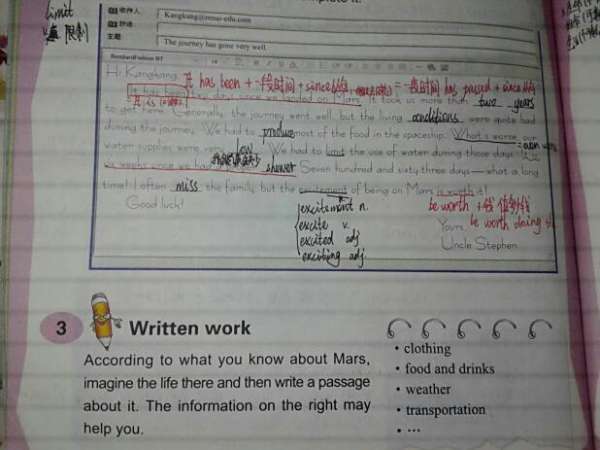 limit
限制
收件人 Kangkang@renai-edu.com
主题 The journey has gone very well
Hi Kangkang,
It has been + 一段时间 + since 从句 = 一段时间 has passed + since 从句
It has been days since we landed on Mars. It took us more than two years
It is
to get here. Generally, the journey went well, but the living conditions were quite bad
during the journey. We had to produce most of the food in the spaceship. What's worse, our
water supplies were very low. We had to limit the use of water during those days. It was
weeks since we had a shower. Seven hundred and sixty three days—what a long
time! I often miss the family, but the excitement of being on Mars is worth it!
Good luck!
excitement n.
excite v.
excited adj
exciting adj
be worth
be worth doing
Yours,
Uncle Stephen
3 Written work
According to what you know about Mars,
imagine the life there and then write a passage
about it. The information on the right may
help you.
• clothing
• food and drinks
• weather
• transportation
• ...